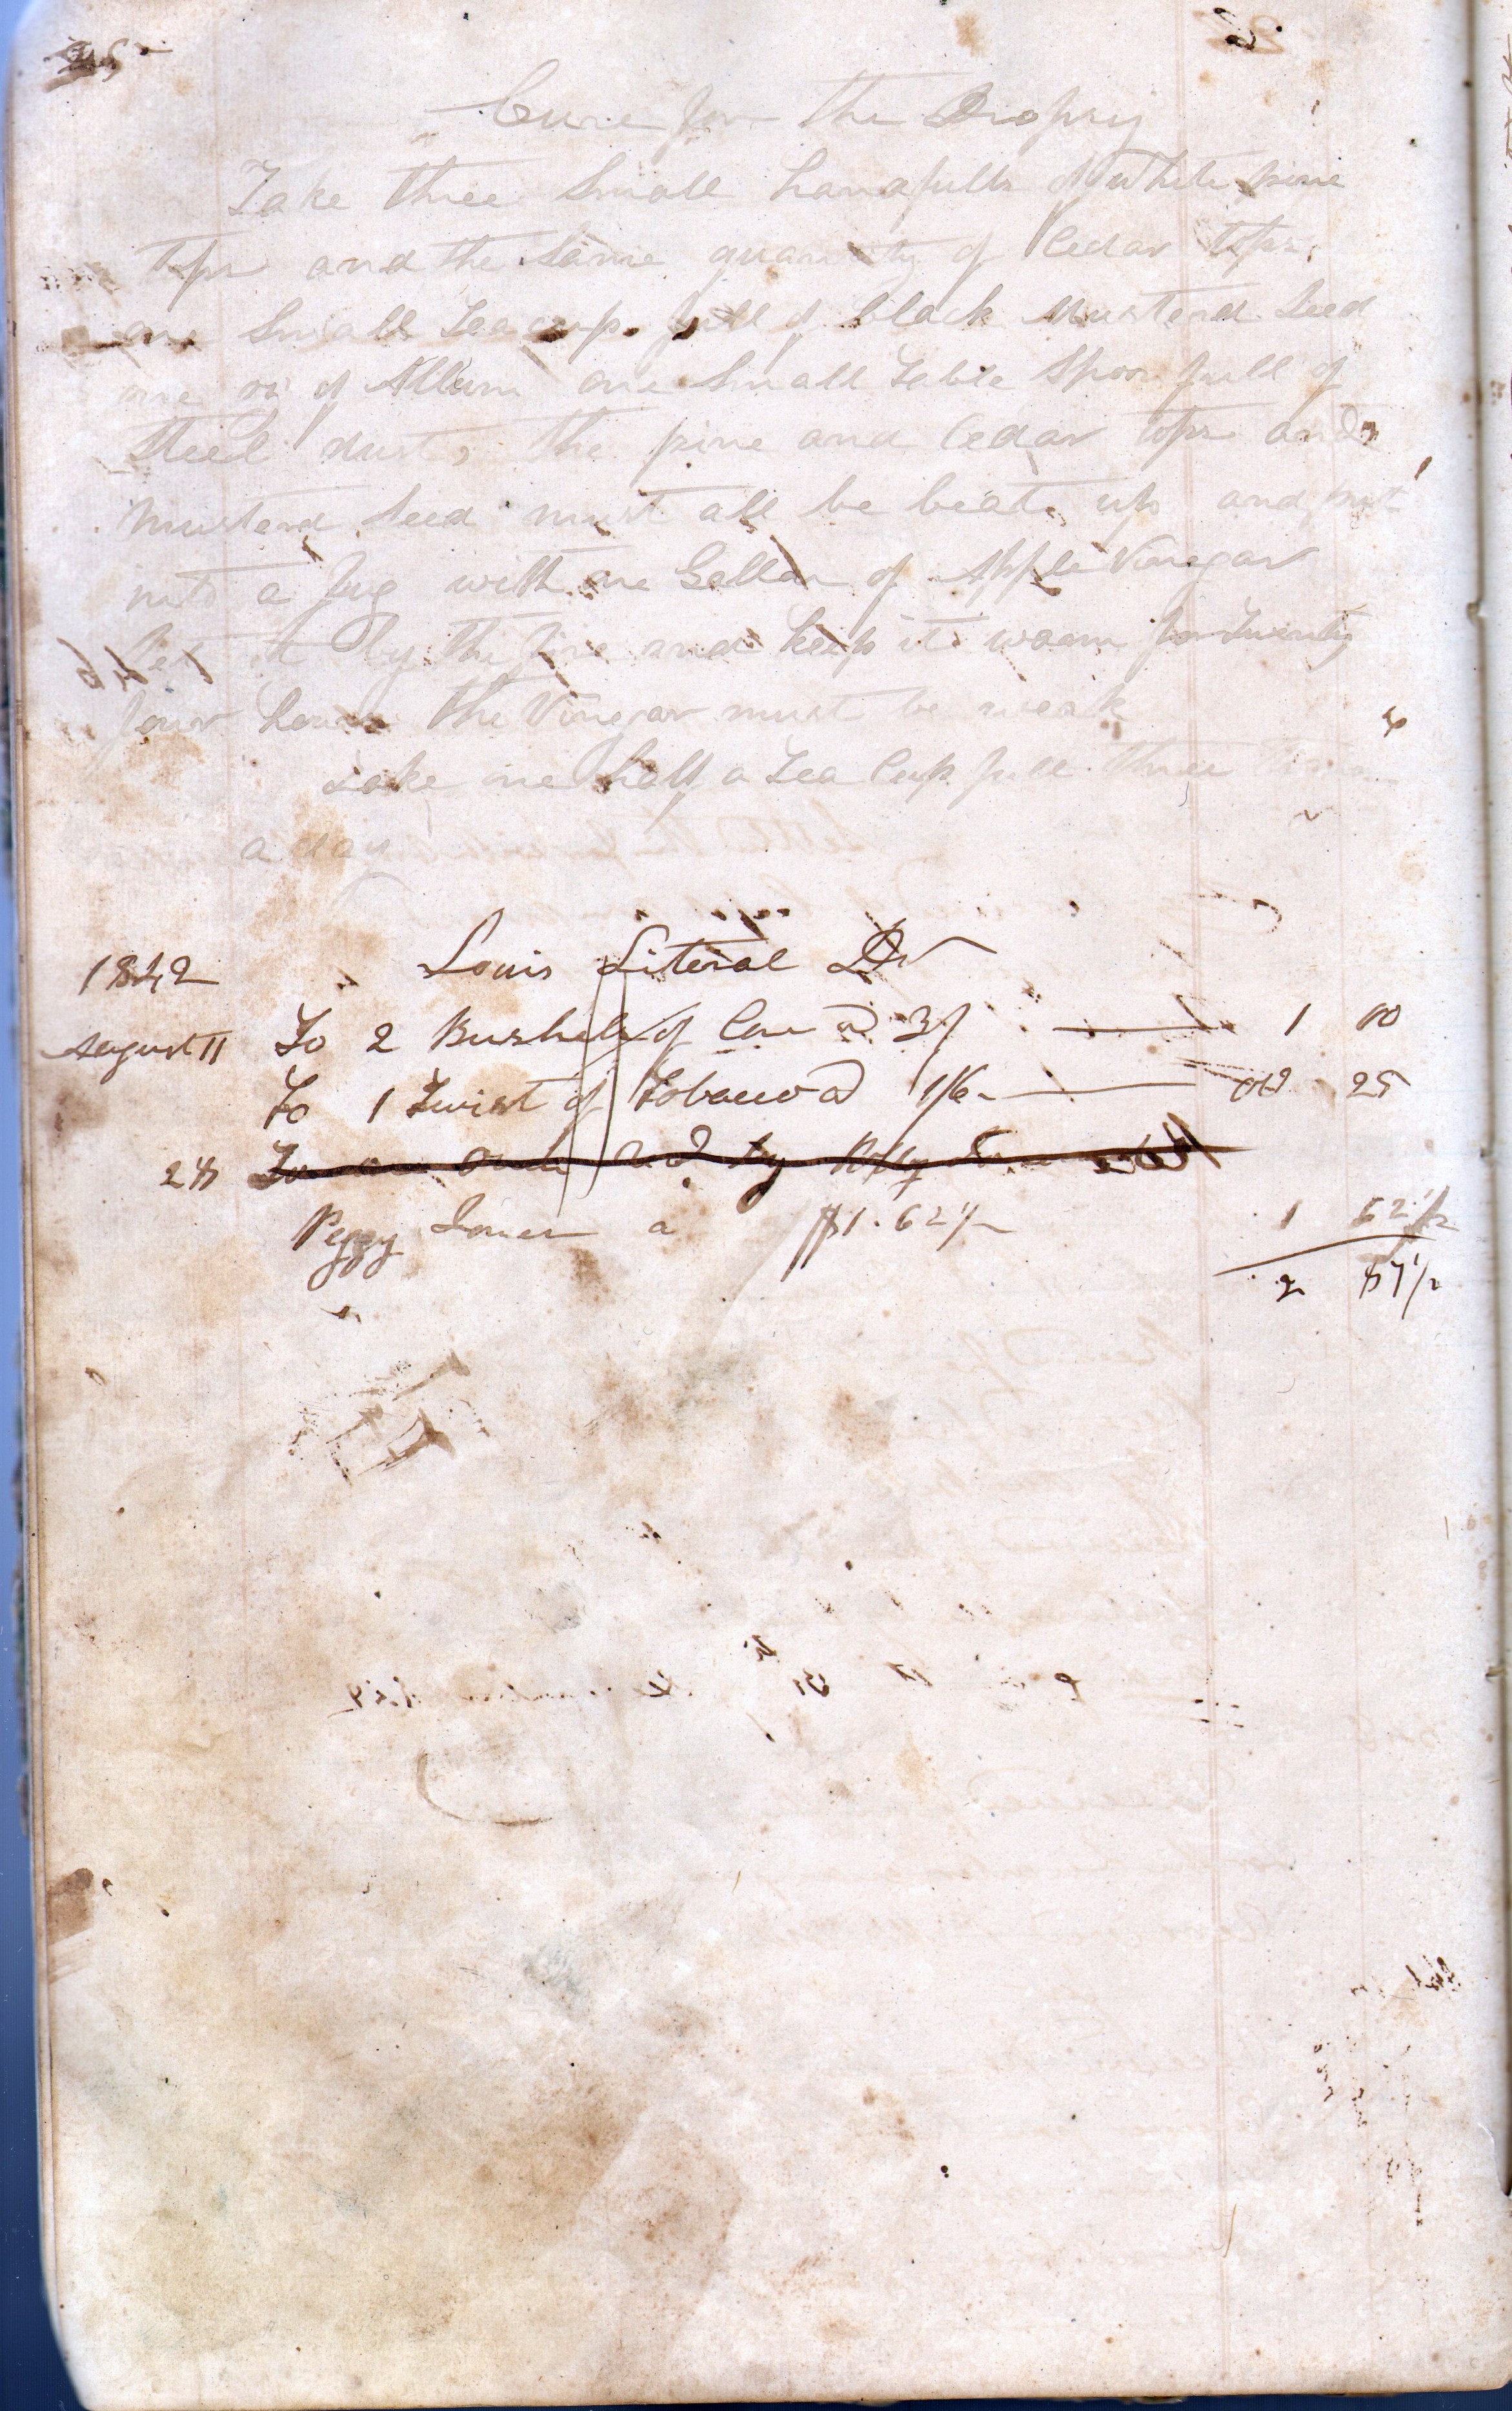 25
Cure for the Dropsy
Take three Small handfulls of White pine
tops and the Same quantity of Cedar tops,
one Small Teacup full of black Mustard Seed
one oz of Allum one Small Table Spoon full of
Steel dust, the pine and Cedar tops and
mustard Seed must all be beate up and put
into a Jug with one Gallon of Apple Vinegar
Set it by the fire and keep it warm for Twenty
four hours the Vinegar must be weak
Take one half a Tea Cup full three
a day
1842 Louis Literal Dr
August 11 To 2 Bushels of Corn @ 3/ 1 00
To 1 Twist of Tobacco @ 1/6 00 25
28 To an order by
Peggy Jones a $1.62 1/2 1 62 1/2
2 87 1/2